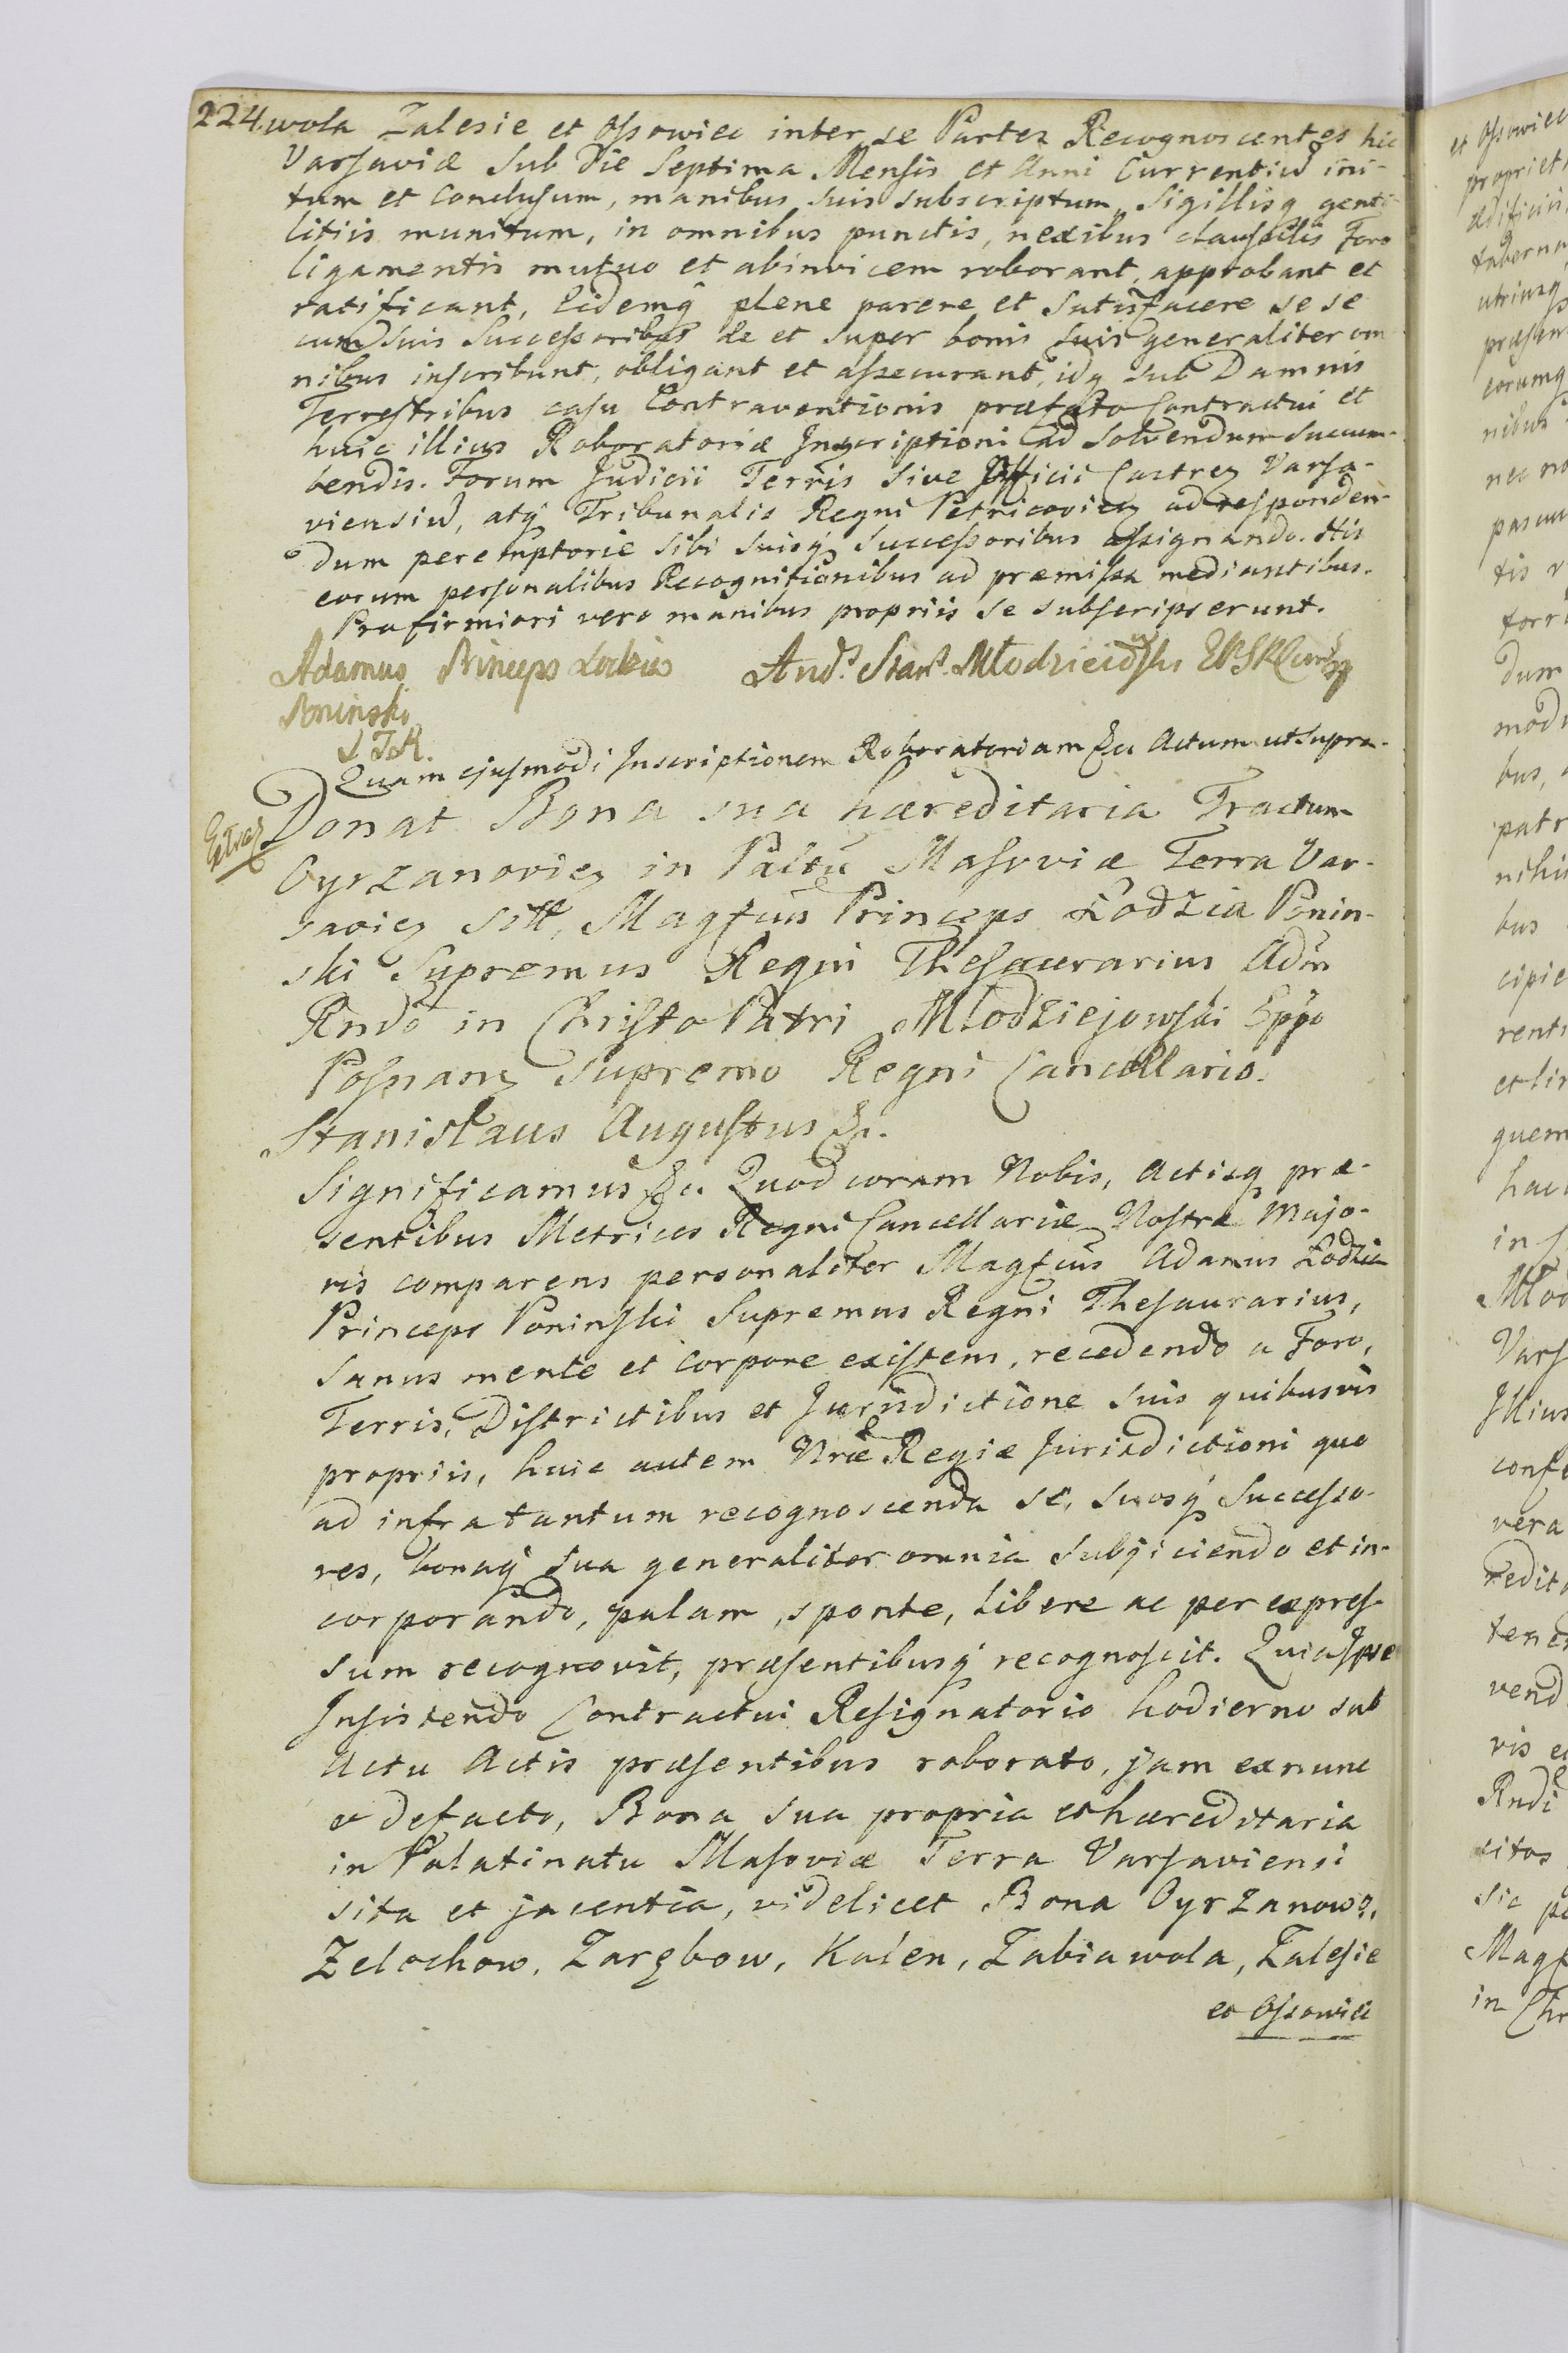 224. wola Zalesie et Ossowiec inter se Partes Recognoscentes hic
Varsaviæ sub die Septima Mensis et Anni Currentiū ini-
tum et conclusum, manibus suis subscriptum, Sigillisq genti-
litiis munitum, in omnibus punctis, nexibus clausulis Foro
ligamentis mutuo et abinvicem roborant, approbant et
ratificant, Eidemq plene parere et satisfacere se se
cum suis Successoribus de et super bonis suis generaliter om
nibus inscribunt, obligant et assecurant, idq sub Damnis
Terrestribus casu Contraventionis præfato Contractui et
huic illius Roboratoriæ Inscriptioni ad solvendum succum-
bendis. Forum Judicii Terris sive Officii Castren Varsa-
viensiū, atq Tribunalis Regni Petricovien ad responden-
dum peremptorie sibi suisq Successoribus assignando. His
eorum personalibus Recognitionibus ad præmissa mediantibus.
Pro firmiori vero manibus propriis se subscripserunt.
Adamus Princeps Lodzia And. Stan. Młodzieiowski
Poninski
S T R.
Quam ejusmodi Inscriptionem Roboratoriam &c Actum ut supra.
Extrad.
Donat Bona sua hæreditaria Tractum
Oyrzanovien in Palttū Masoviæ Terra Var-
savien sitt, Magfcus Princeps Łodzia Ponin-
ski Supremus Regni Thesaurarius Adm
Rndo in Christo Patri Młodziejowski Eppo
Posnan Supremo Regni Cancellario.
Stanislaus Augustus &c.
Significamus &c. Quod coram Nobis, Actisq præ-
sentibus Metrices Regni Cancellariæ Nostræ Majo-
ris comparens personaliter Magfcus Adamus Łodzia
Princeps Poninski Supremus Regni Thesaurarius,
sanus mente et corpore existens, recedendo a Foro,
Terris, Districtibus et Jurisdictione suis quibusvis
propriis, huic autem Nræ Regiæ Jurisdictioni quo
ad infra tantum recognoscenda se, suosq Successo-
res, bonaq sua generaliter omnia subjiciendo et in-
corporando, palam, sponte, libere ac per expres-
sum recognovit, præsentibusq recognoscit. Quia Ipse
Insistendo Contractui Resignatorio hodierno sub
Actu Actis præsentibus roborato, jam exnunc
et defacto, Bona sua propria et hæreditaria
in Palatinatu Masoviæ Terra Varsaviensi
sita et jacentia, videlicet Bona Oyrzanow,
Zelechow, Zarębow, Kalen, Zabia wola, Zalesie
et Ossowiec